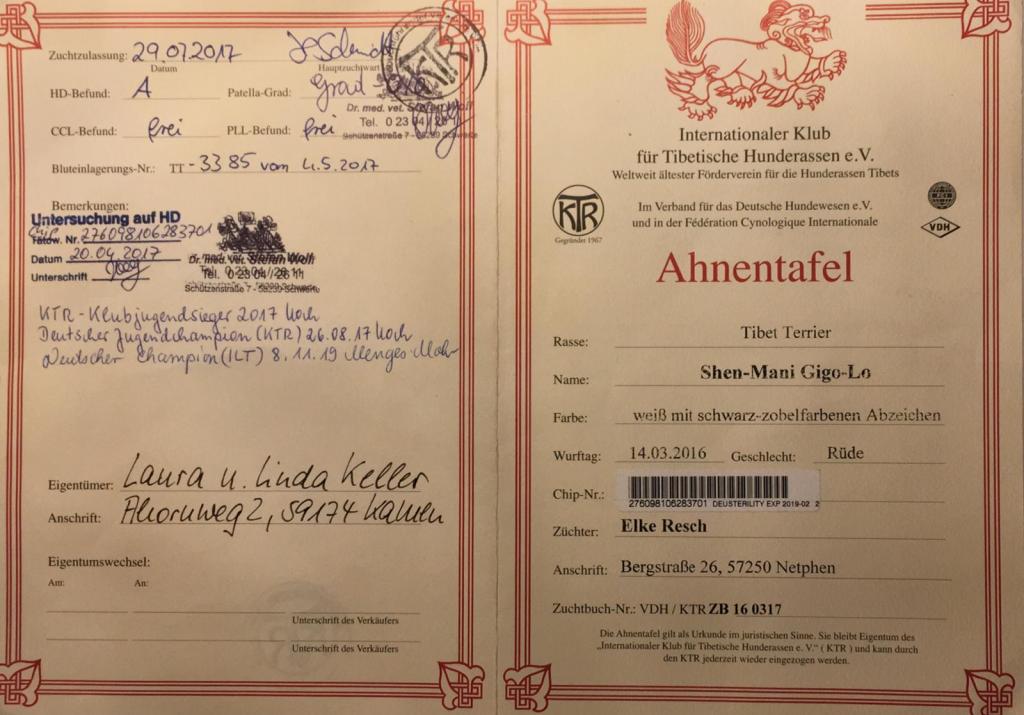 Zuchtzulassung: 29.07.2017
Datum
Hauptzuchtwart
KTR
HD-Befund: A Patella-Grad: Grad
Dr. med. vet. Stefan Wolf
Tel. 0 23 04 / 26 11
CCL-Befund: frei PLL-Befund: frei
Schützenstraße 7 - 58239 Schwerte
Bluteinlagerungs-Nr.: TT -3385 vom 4.5.2017
Bemerkungen:
Untersuchung auf HD
Tätow. Nr. 276098106283701
Datum 20.04.2017
Unterschrift
Dr. med. vet. Stefan Wolf
Tel. 0 23 04 / 26 11
Schützenstraße 7 - 58239 Schwerte
KTR-Klubjugendsieger 2017 Koch
Deutscher Jugendchampion (KTR) 26.08.17 Koch
Deutscher Champion (ILT) 8.11.19 Menges-Mohr
Eigentümer: Laura u. Linda Keller
Anschrift: Ahornweg 2, 59174 Kamen
Eigentumswechsel:
Am: An:
Unterschrift des Verkäufers
Unterschrift des Verkäufers
Internationaler Klub
für Tibetische Hunderassen e.V.
Weltweit ältester Förderverein für die Hunderassen Tibets
KTR
Gegründet 1967
Im Verband für das Deutsche Hundewesen e.V.
und in der Fédération Cynologique Internationale
FCI
VDH
Ahnentafel
Rasse: Tibet Terrier
Name: Shen-Mani Gigo-Lo
Farbe: weiß mit schwarz-zobelfarbenen Abzeichen
Wurftag: 14.03.2016 Geschlecht: Rüde
Chip-Nr.: 276098106283701 DEUSTERILITY EXP 2019-02 2
Züchter: Elke Resch
Anschrift: Bergstraße 26, 57250 Netphen
Zuchtbuch-Nr.: VDH / KTR ZB 16 0317
Die Ahnentafel gilt als Urkunde im juristischen Sinne. Sie bleibt Eigentum des
„Internationaler Klub für Tibetische Hunderassen e. V." ( KTR ) und kann durch
den KTR jederzeit wieder eingezogen werden.